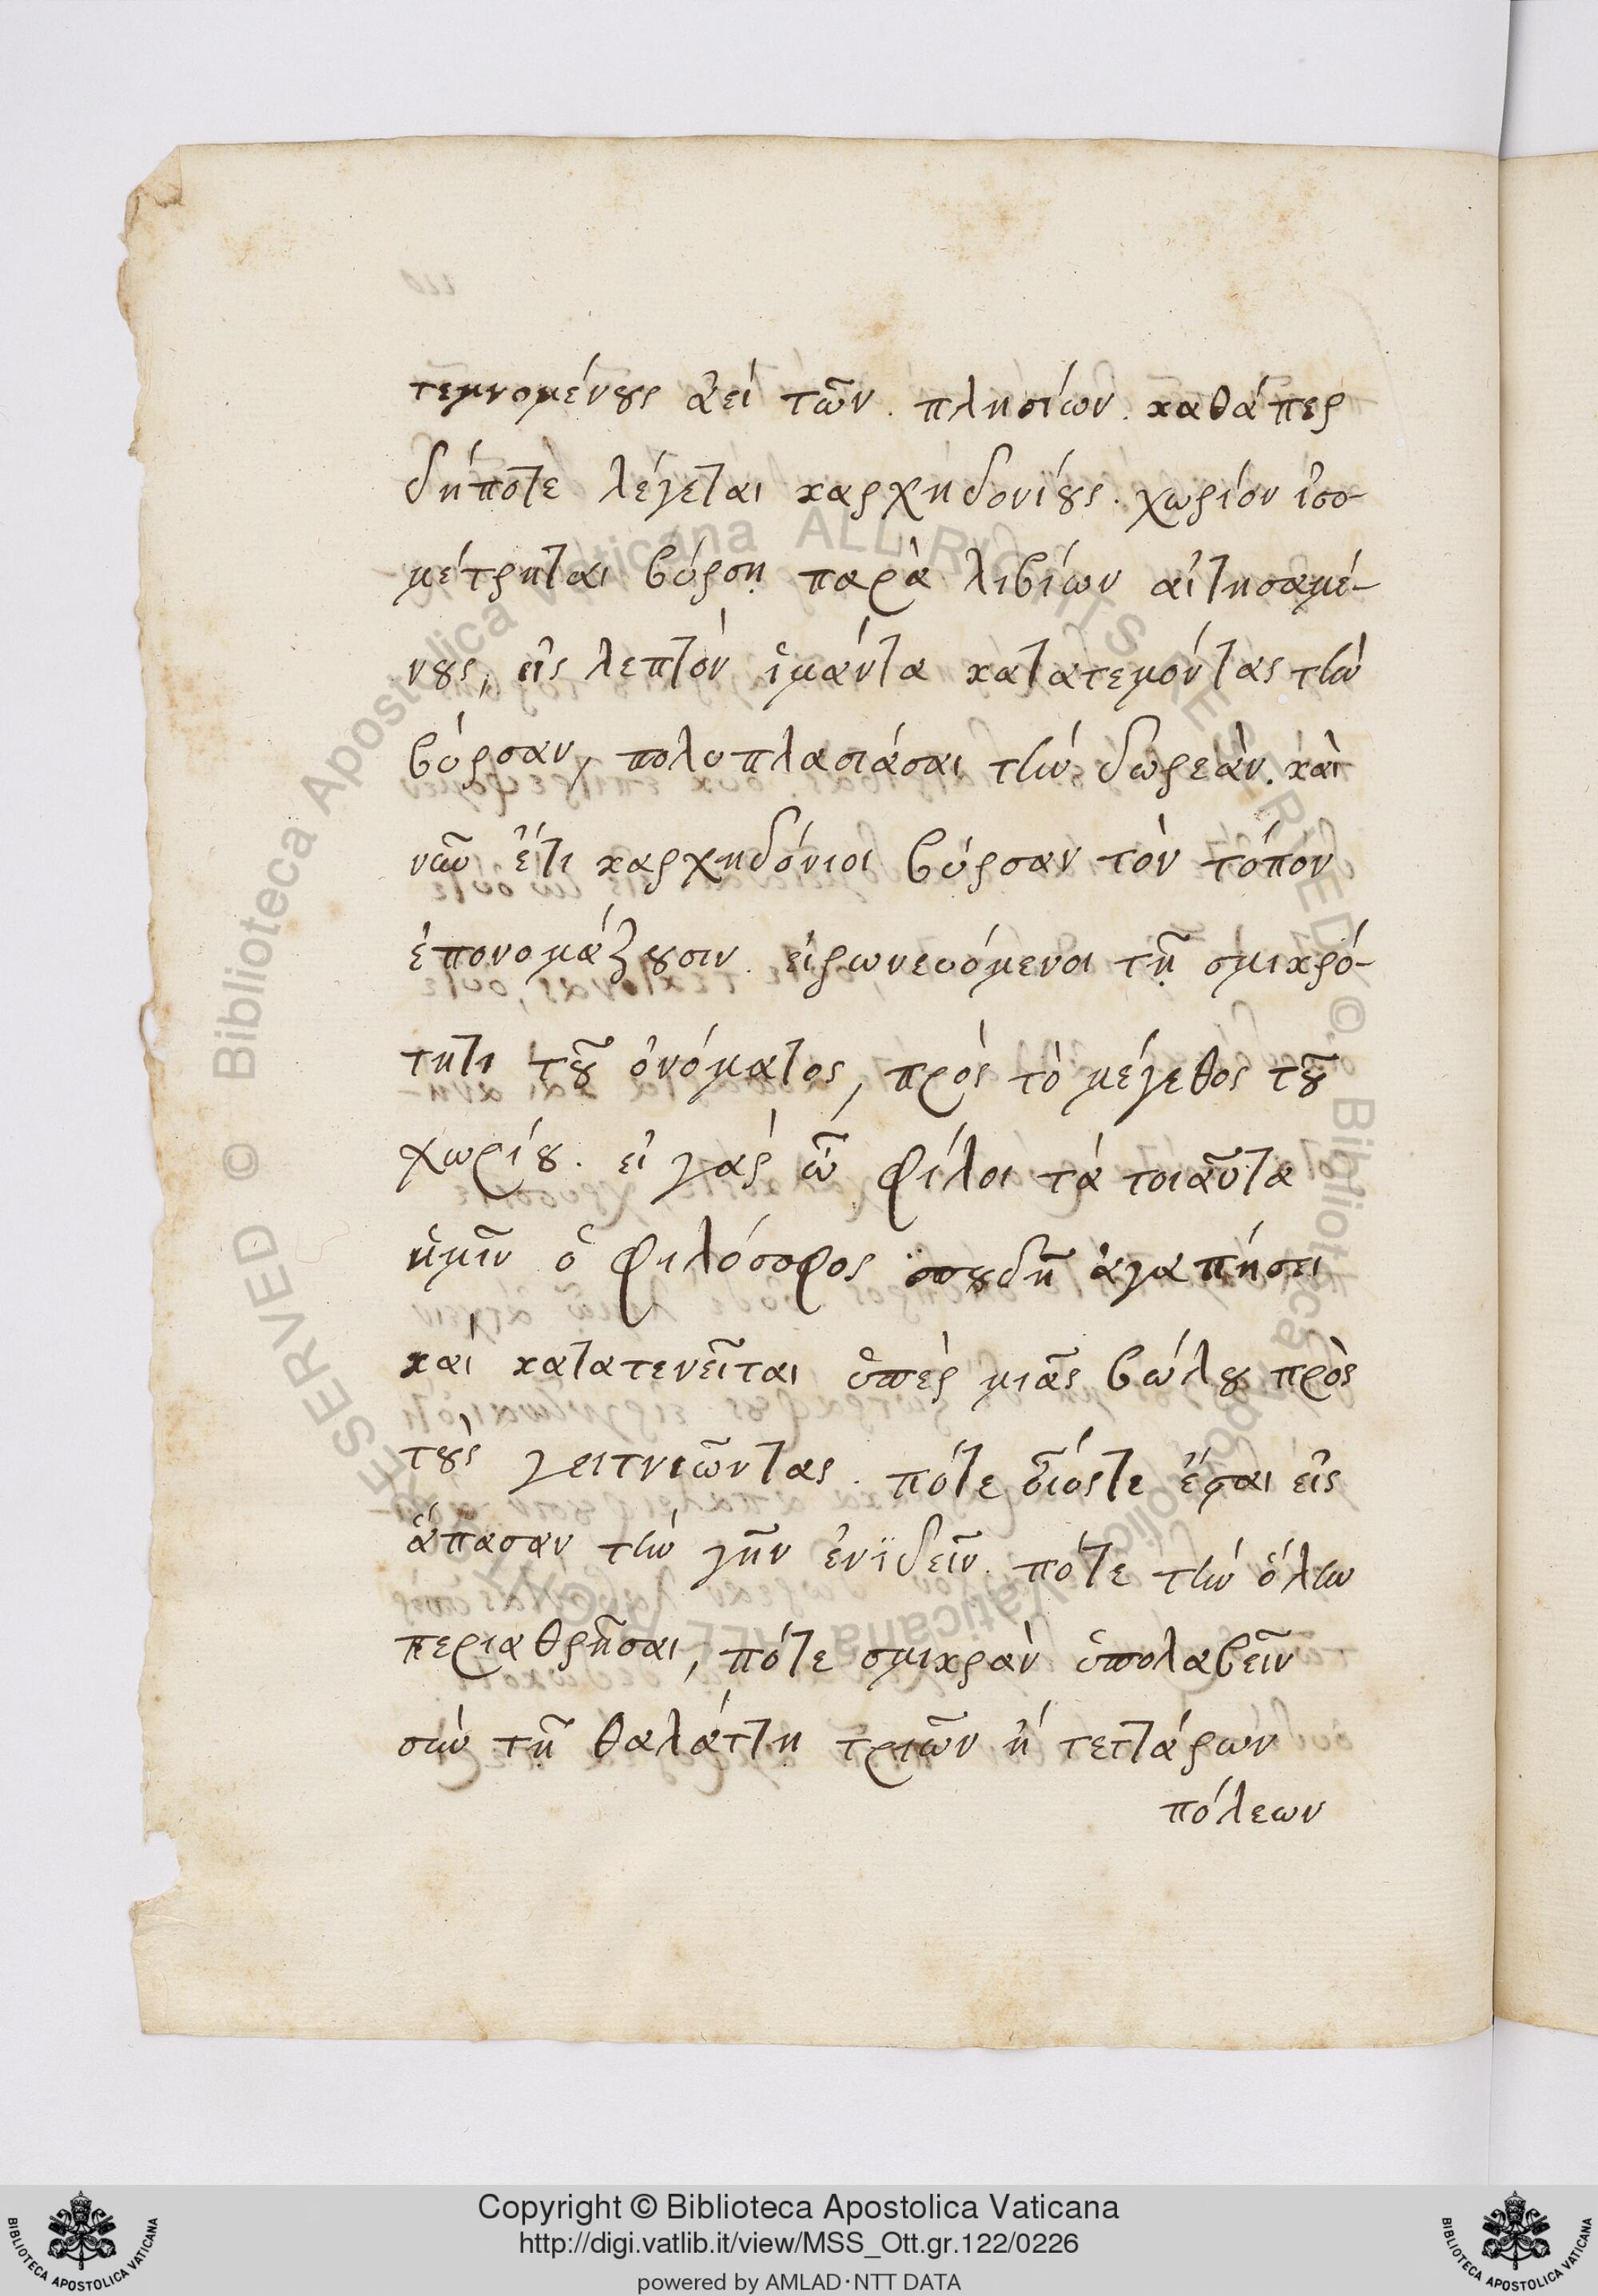 τεμνομένους ἀεὶ τῶν. πλησίων. καθάπερ
δήποτε λέγεται καρχηδονίους. χωρίον ἰσο-
μέτρηται βύρσῃ παρὰ λιβίων αἰτησαμέ-
νους, εἰς λεπτὸν ἱμάντα κατατεμόντας τὴν
βύρσαν, πολυπλασιάσαι τὴν δωρεὰν. καὶ
νῦν ἔτι καρχηδόνιοι βύρσαν τὸν τόπον
ἐπονομάζουσιν. εἰρωνευόμενοι τῇ σμικρό-
τητι τοῦ ὀνόματος, πρὸς τὸ μέγεθος τοῦ
χωρίου. εἰ γὰρ ὦ φίλοι τὰ τοιαῦτα
ἡμῖν ὁ φιλόσοφος σπουδῇ ἀγαπήσει
καὶ κατατενεῖται ὑπὲρ μιᾶς βώλου πρὸς
τοὺς γειτνιῶντας. πότε οἷός τε ἔσται εἰς
ἅπασαν τὴν γῆν ἐνϊδεῖν. πότε τὴν ὅλην
περιαθρῆσαι, πότε σμικρὰν ὑπολαβεῖν
σὺν τῇ θαλάττῃ τριῶν ἢ τεττάρων
πόλεων
Biblioteca Apostolica Vaticana ALL RIGHTS RESERVED © Biblioteca Apostolica Vaticana ALL RIGHTS RESERVED ©
Copyright © Biblioteca Apostolica Vaticana
http://digi.vatlib.it/view/MSS_Ott.gr.122/0226
powered by AMLAD·NTT DATA
BIBLIOTECA APOSTOLICA VATICANA
BIBLIOTECA APOSTOLICA VATICANA